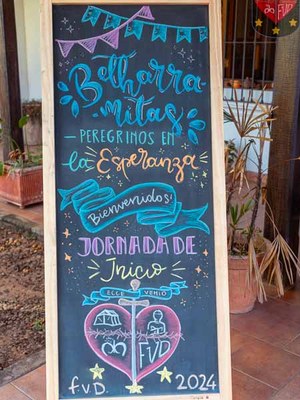 Betharra
mitas
- PEREGRINOS EN
la Esperanza
Bienvenidos!
JORNADA DE
Inicio
ECCE VENIO
FVD
F.V.D. 2024